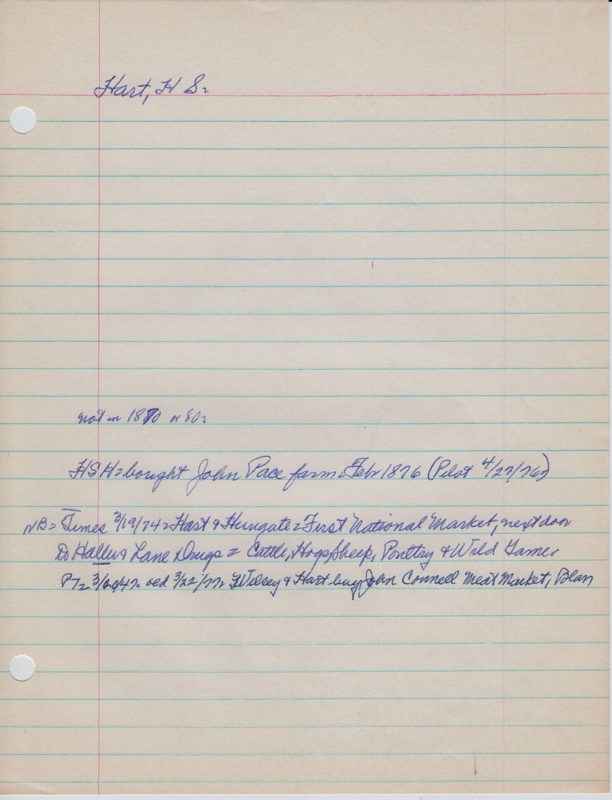 Hart, H S.
not in 1870 or 80.
HSH = bought John Pace farm. Feb 1876 (Pilot 4/27/76)
NB = Times 3/19/74 = Hart & Hungate = "First National" Market, next door
to Haller & Lane Drugs = Cattle, Hogs, Sheep, Poultry & Wild Game.
3/22/77. Wilsey & Hart buy John Connell Meat Market, Blan